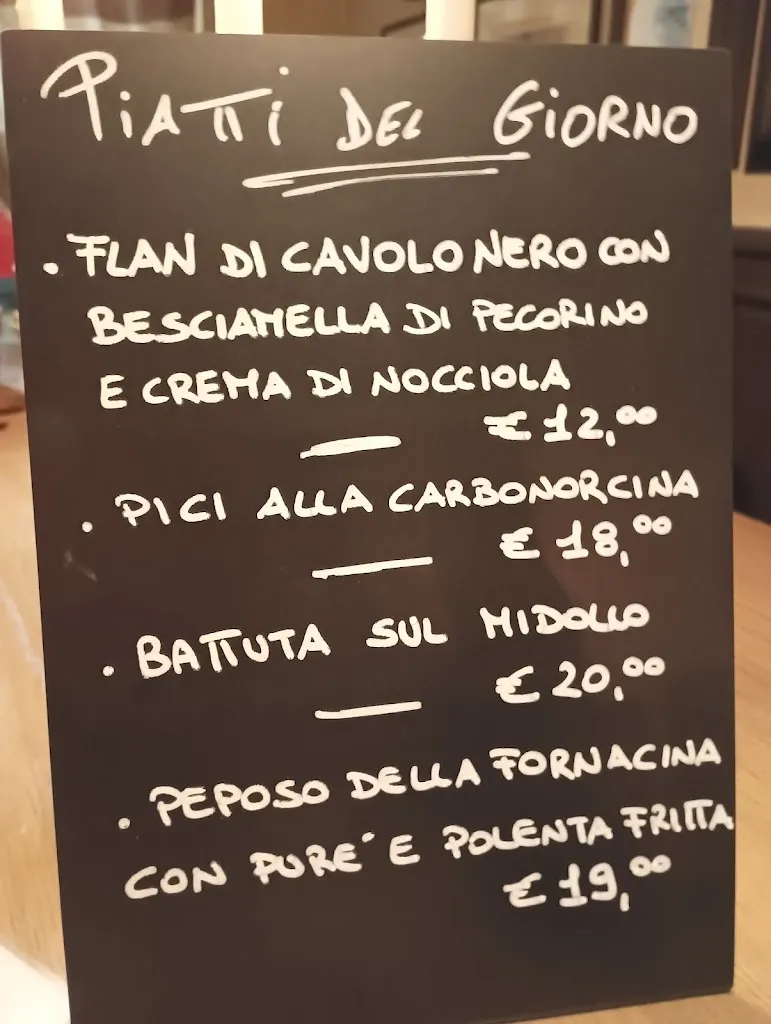 PiATTi DEL GiORNO
. FLAN DI CAVOLO NERO CON
BESCIAMELLA DI PECORINO
E CREMA DI NOCCIOLA
€ 12,00
. PICI ALLA CARBONORCINA
€ 18,00
. BATTUTA SUL MIDOLLO
€ 20,00
. PEPOSO DELLA FORNACINA
CON PURE´ E POLENTA FRITTA
€ 19,00